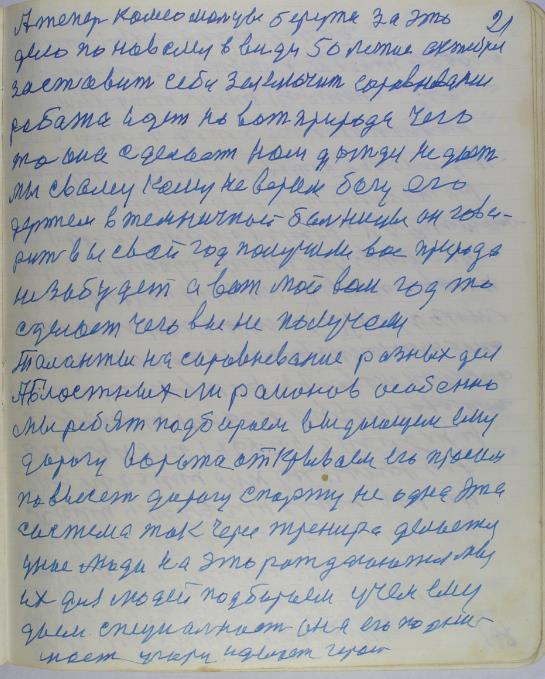 21
А тепер комсомолцы берутся за это
дело по новому в виду 50 летие октября
заставит себя заключит соревнование
работа идет но вот природа чего
то она сделает нам дожди не даст
мы свому кому не верем богу его
держем в темничной болницы он гово-
рит вы свой год получили вас природа
незабудет а вот мой вам год то
сделает чего вы не получали
Таланты на соревнование разных дел
Областных ли районов особенно
мы ребят подбираем выдвигаем ему
дорогу ворота открываем его просим
повысет дорогу спорту не одна эта
система так через тренира делается
уные люди на это рождаются мы
их для людей подбираем учем ему
даем специалност она его подни-
мает и делает герой